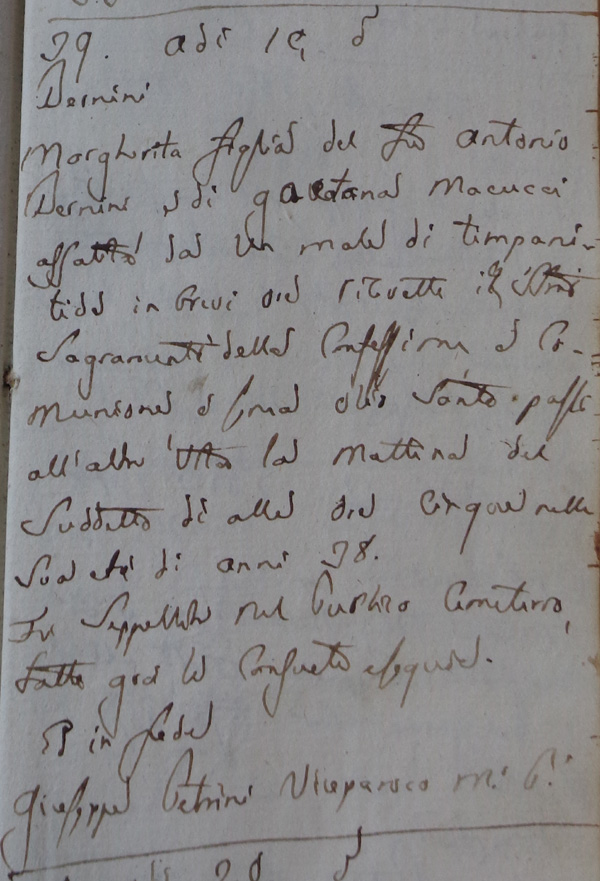 39. Adi 19 d
Dernini
Margherita figlia del fù Antonio
Dernini e di Gaetana Macucci
assalita da un male di timpani-
tide in brevi ore ricevette
Sagramenti della Confessione e Co-
munione e l'ma olio Santo passò
all'altra Vita la mattina del
Suddetto dì alle ore cinque nella
Sua età di anni 38.
Fu Seppellita nel Pubblico Cemeterio,
fatte già le Consuete esequie.
Ed in fede
Giuseppe Petrini Viceparoco